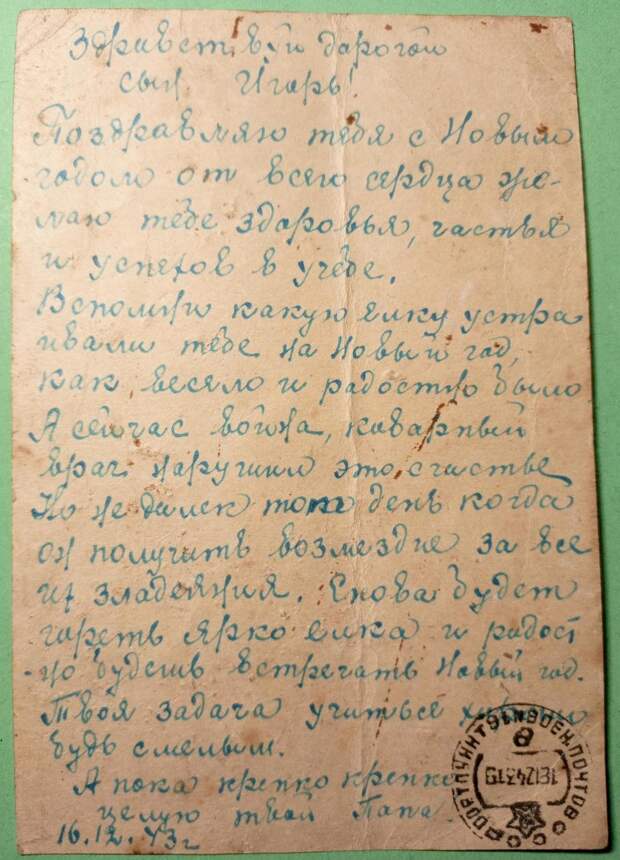 Здравствуй дарогой
сын Игорь!
Поздравляю тебя с Новым
годом от всего сердца же-
лаю тебе здоровья, частья
и успехов в учебе.
Вспомни какую елку устра
ивали тебе на новый год,
как весело и радостно было
А сейчас война, коварный
враг нарушил это счастье
Но не далек тот день когда
он получить возмездие за все
их зладеяния. Снова будет
гореть ярко елка и радост
-но будешь встречать новый год.
Твоя задача учиться
будь смелым.
А пока крепко крепко
целую твой Папа
16.12.43г
18.12.43